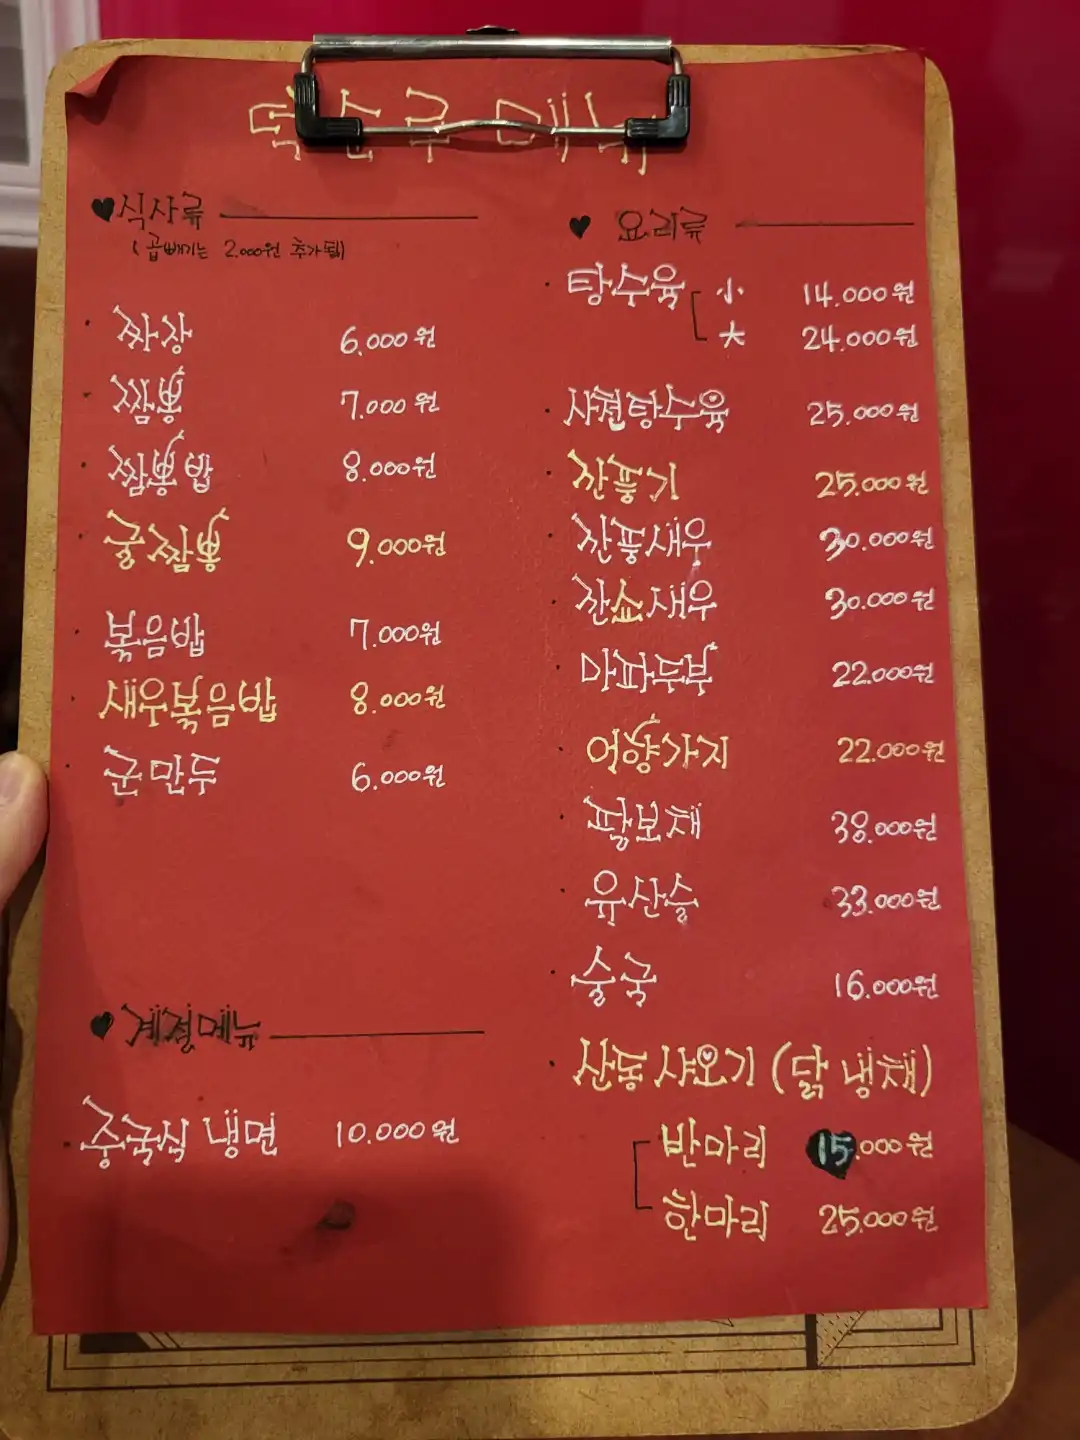 메뉴
♥식사류
(곱빼기는 2.000원 추가됨)
· 짜장 6.000원
· 짬뽕 7.000원
· 짬뽕밥 8.000원
· 굴짬뽕 9.000원
· 볶음밥 7.000원
· 새우볶음밥 8.000원
· 군만두 6.000원
♥계절메뉴
· 중국식 냉면 10.000원
♥ 요리류
· 탕수육 小 14.000원
大 24.000원
· 사천탕수육 25.000원
· 깐풍기 25.000원
· 깐풍새우 30.000원
· 깐쇼새우 30.000원
· 마파두부 22.000원
· 어향가지 22.000원
· 팔보채 38.000원
· 유산슬 33.000원
· 술국 16.000원
· 산동 샤오기 (닭 냉채)
반마리 15.000원
한마리 25.000원